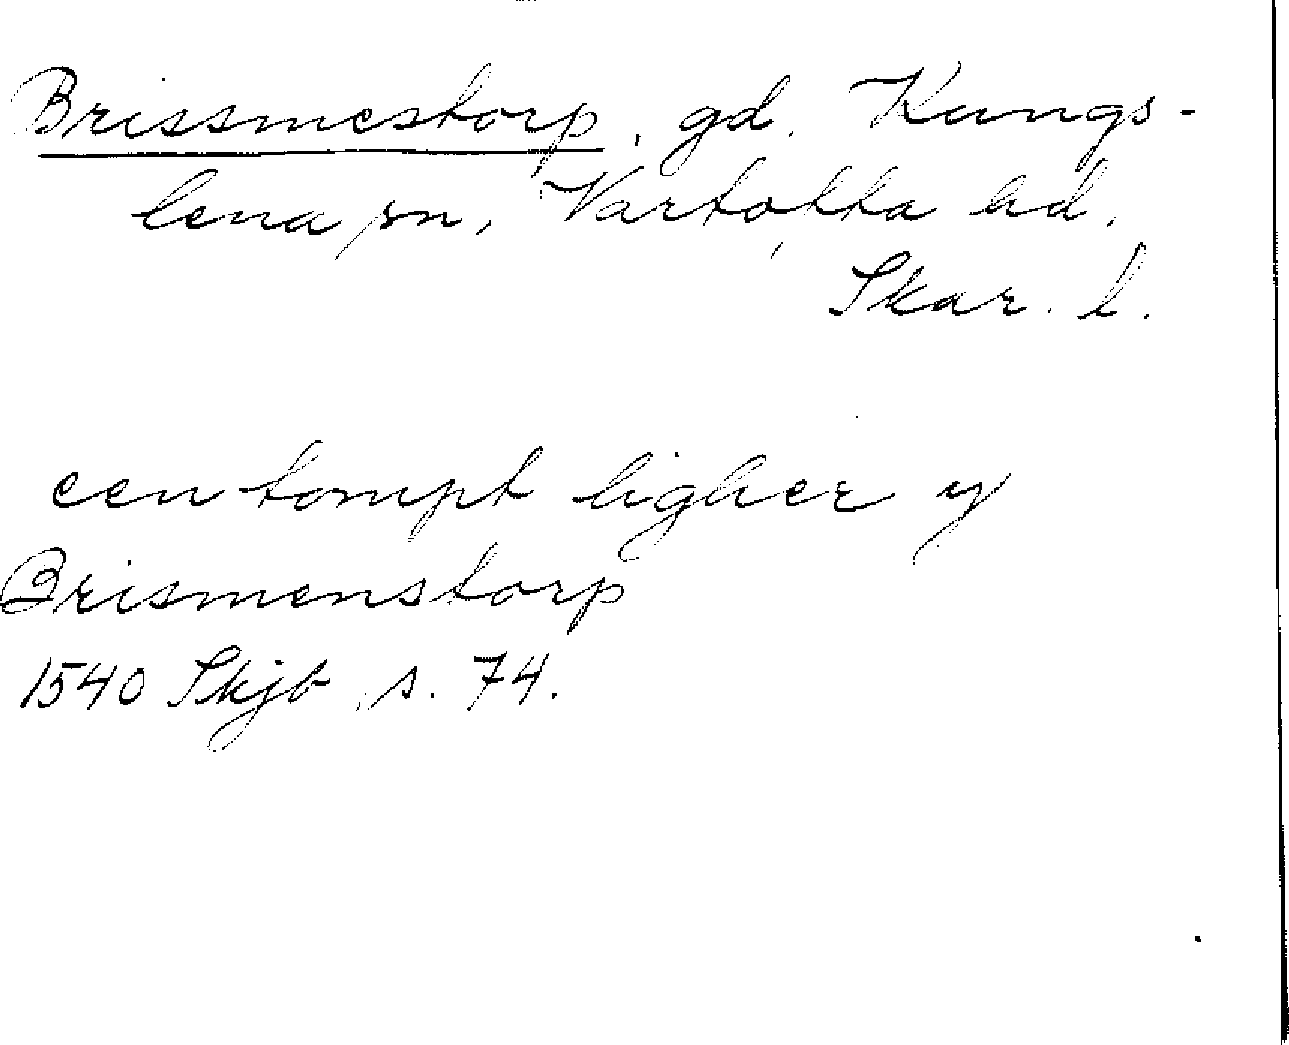 Brissmestorp, gd. Kungs-
lena sn, Vartofta hd,
Skar. l.
een tompt ligher y
Brismenstorp
1540 Skjb s. 74.